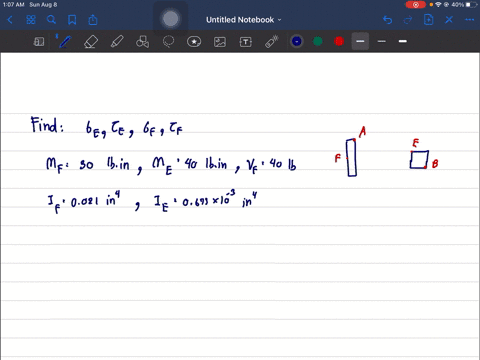 1:07 AM Sun Aug 8
40%
Untitled Notebook
Find: σE, τE, σF, τF
MF = 30 lb.in, ME = 40 lb.in, VF = 40 lb
IF = 0.021 in⁴, IE = 0.693 × 10⁻³ in⁴
A
F
E
B